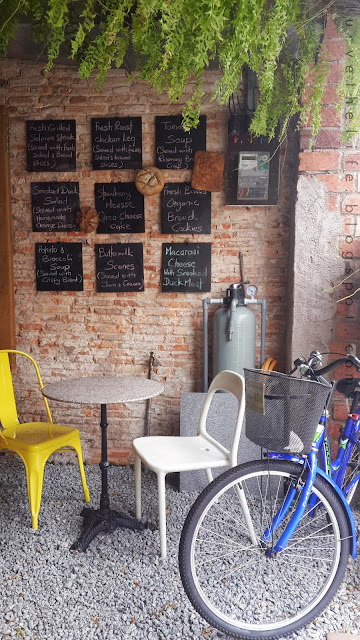 Fresh Grilled
Salmon Steak
(Served with Fries
Salad & Bread)
Fresh Roast
chicken Leg
(Served with Fries
Salad & bread)
Tomato
Soup
(Served with
Rosemary Bread)
Smoked Duck
Salad
(Served with
Homemade
Orange Dress)
Strawberry
Mousse
Cake
Fresh Baked
Organic
Bread,
Cookies
Potato &
Broccoli
Soup
(Served with
Crispy Bread)
Buttermilk
Scones
(Served with
Jam & Cream)
Macaroni
Cheese
With Smoked
Duck Meat